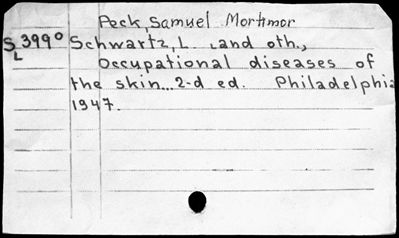 Peck, Samuel Mortimor
S 399⁰ Schwartz, L. and oth.,
L Occupational diseases of
the skin... 2-d ed. Philadelphia
1947.